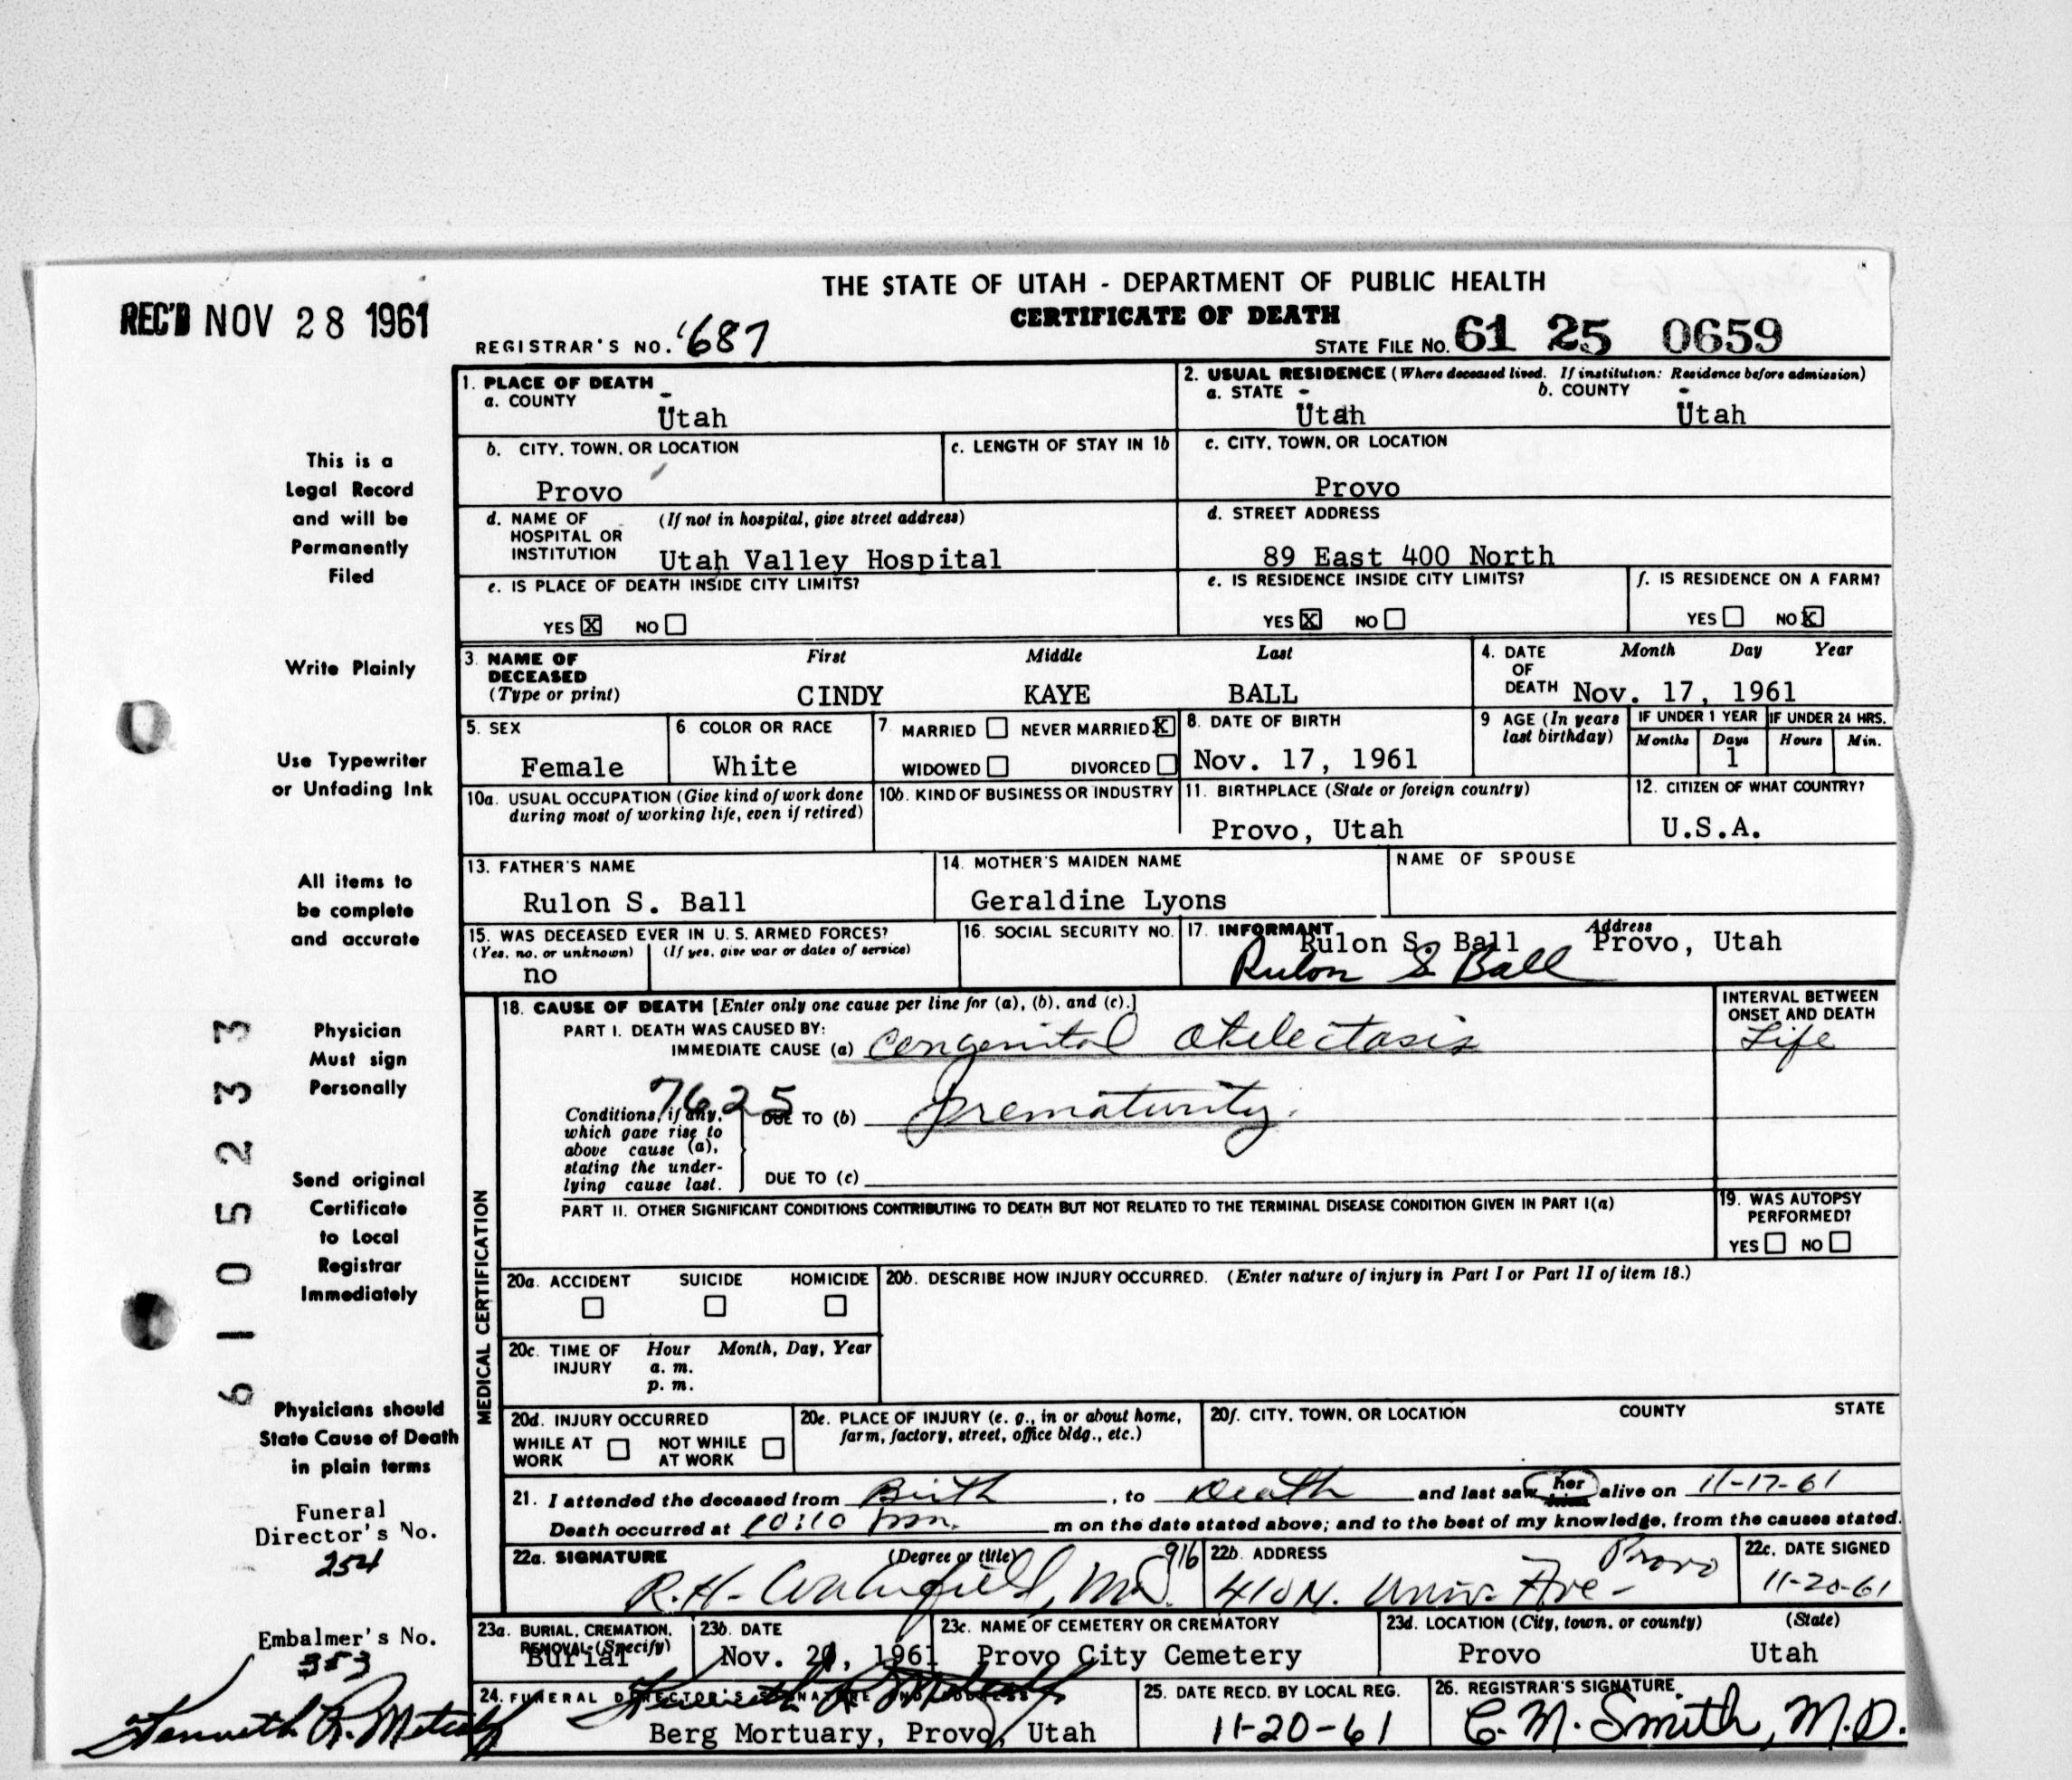 THE STATE OF UTAH - DEPARTMENT OF PUBLIC HEALTH
CERTIFICATE OF DEATH
REC'D NOV 28 1961
REGISTRAR'S NO. 687
STATE FILE NO. 61 25 0659
1. PLACE OF DEATH
a. COUNTY
Utah
2. USUAL RESIDENCE (Where deceased lived. If institution: Residence before admission)
a. STATE b. COUNTY
Utah Utah
b. CITY, TOWN, OR LOCATION
Provo
c. LENGTH OF STAY IN 1b
c. CITY, TOWN, OR LOCATION
Provo
d. NAME OF HOSPITAL OR INSTITUTION (If not in hospital, give street address)
Utah Valley Hospital
d. STREET ADDRESS
89 East 400 North
e. IS PLACE OF DEATH INSIDE CITY LIMITS?
YES X NO
e. IS RESIDENCE INSIDE CITY LIMITS?
YES X NO
f. IS RESIDENCE ON A FARM?
YES NO X
3. NAME OF DECEASED (Type or print)
First Middle Last
CINDY KAYE BALL
4. DATE OF DEATH Month Day Year
Nov. 17, 1961
5. SEX
Female
6. COLOR OR RACE
White
7. MARRIED NEVER MARRIED X
WIDOWED DIVORCED
8. DATE OF BIRTH
Nov. 17, 1961
9 AGE (In years last birthday)
IF UNDER 1 YEAR IF UNDER 24 HRS.
Months Days Hours Min.
1
10a. USUAL OCCUPATION (Give kind of work done during most of working life, even if retired)
10b. KIND OF BUSINESS OR INDUSTRY
11. BIRTHPLACE (State or foreign country)
Provo, Utah
12. CITIZEN OF WHAT COUNTRY?
U.S.A.
13. FATHER'S NAME
Rulon S. Ball
14. MOTHER'S MAIDEN NAME
Geraldine Lyons
NAME OF SPOUSE
15. WAS DECEASED EVER IN U. S. ARMED FORCES?
(Yes, no, or unknown) (If yes, give war or dates of service)
no
16. SOCIAL SECURITY NO.
17. INFORMANT Address
Rulon S. Ball Provo, Utah
Rulon S Ball
MEDICAL CERTIFICATION
18. CAUSE OF DEATH [Enter only one cause per line for (a), (b), and (c).]
PART I. DEATH WAS CAUSED BY:
IMMEDIATE CAUSE (a) Congenital Atelectasis
INTERVAL BETWEEN ONSET AND DEATH
Life
7625
Conditions, if any, which gave rise to above cause (a), stating the underlying cause last.
DUE TO (b) Prematurity.
DUE TO (c)
PART II. OTHER SIGNIFICANT CONDITIONS CONTRIBUTING TO DEATH BUT NOT RELATED TO THE TERMINAL DISEASE CONDITION GIVEN IN PART I(a)
19. WAS AUTOPSY PERFORMED?
YES NO
20a. ACCIDENT SUICIDE HOMICIDE
20b. DESCRIBE HOW INJURY OCCURRED. (Enter nature of injury in Part I or Part II of item 18.)
20c. TIME OF INJURY Hour Month, Day, Year
a. m.
p. m.
20d. INJURY OCCURRED
WHILE AT WORK NOT WHILE AT WORK
20e. PLACE OF INJURY (e. g., in or about home, farm, factory, street, office bldg., etc.)
20f. CITY, TOWN, OR LOCATION COUNTY STATE
21. I attended the deceased from Birth, to Death and last saw her alive on 11-17-61
Death occurred at 10:10 pm. m on the date stated above; and to the best of my knowledge, from the causes stated.
22a. SIGNATURE (Degree or title)
R.H. M.D. 916
22b. ADDRESS
410 N. Univ. Ave - Provo
22c. DATE SIGNED
11-20-61
23a. BURIAL, CREMATION, REMOVAL (Specify)
Burial
23b. DATE
Nov. 20, 1961
23c. NAME OF CEMETERY OR CREMATORY
Provo City Cemetery
23d. LOCATION (City, town, or county) (State)
Provo Utah
24. FUNERAL DIRECTOR'S SIGNATURE AND ADDRESS
Kenneth R. Metcalf
Berg Mortuary, Provo, Utah
25. DATE RECD. BY LOCAL REG.
11-20-61
26. REGISTRAR'S SIGNATURE
C. M. Smith, M.D.
This is a
Legal Record
and will be
Permanently
Filed
Write Plainly
Use Typewriter
or Unfading Ink
All items to
be complete
and accurate
Physician
Must sign
Personally
Send original
Certificate
to Local
Registrar
Immediately
Physicians should
State Cause of Death
in plain terms
Funeral
Director's No.
254
Embalmer's No.
353
Kenneth R. Metcalf
6105233